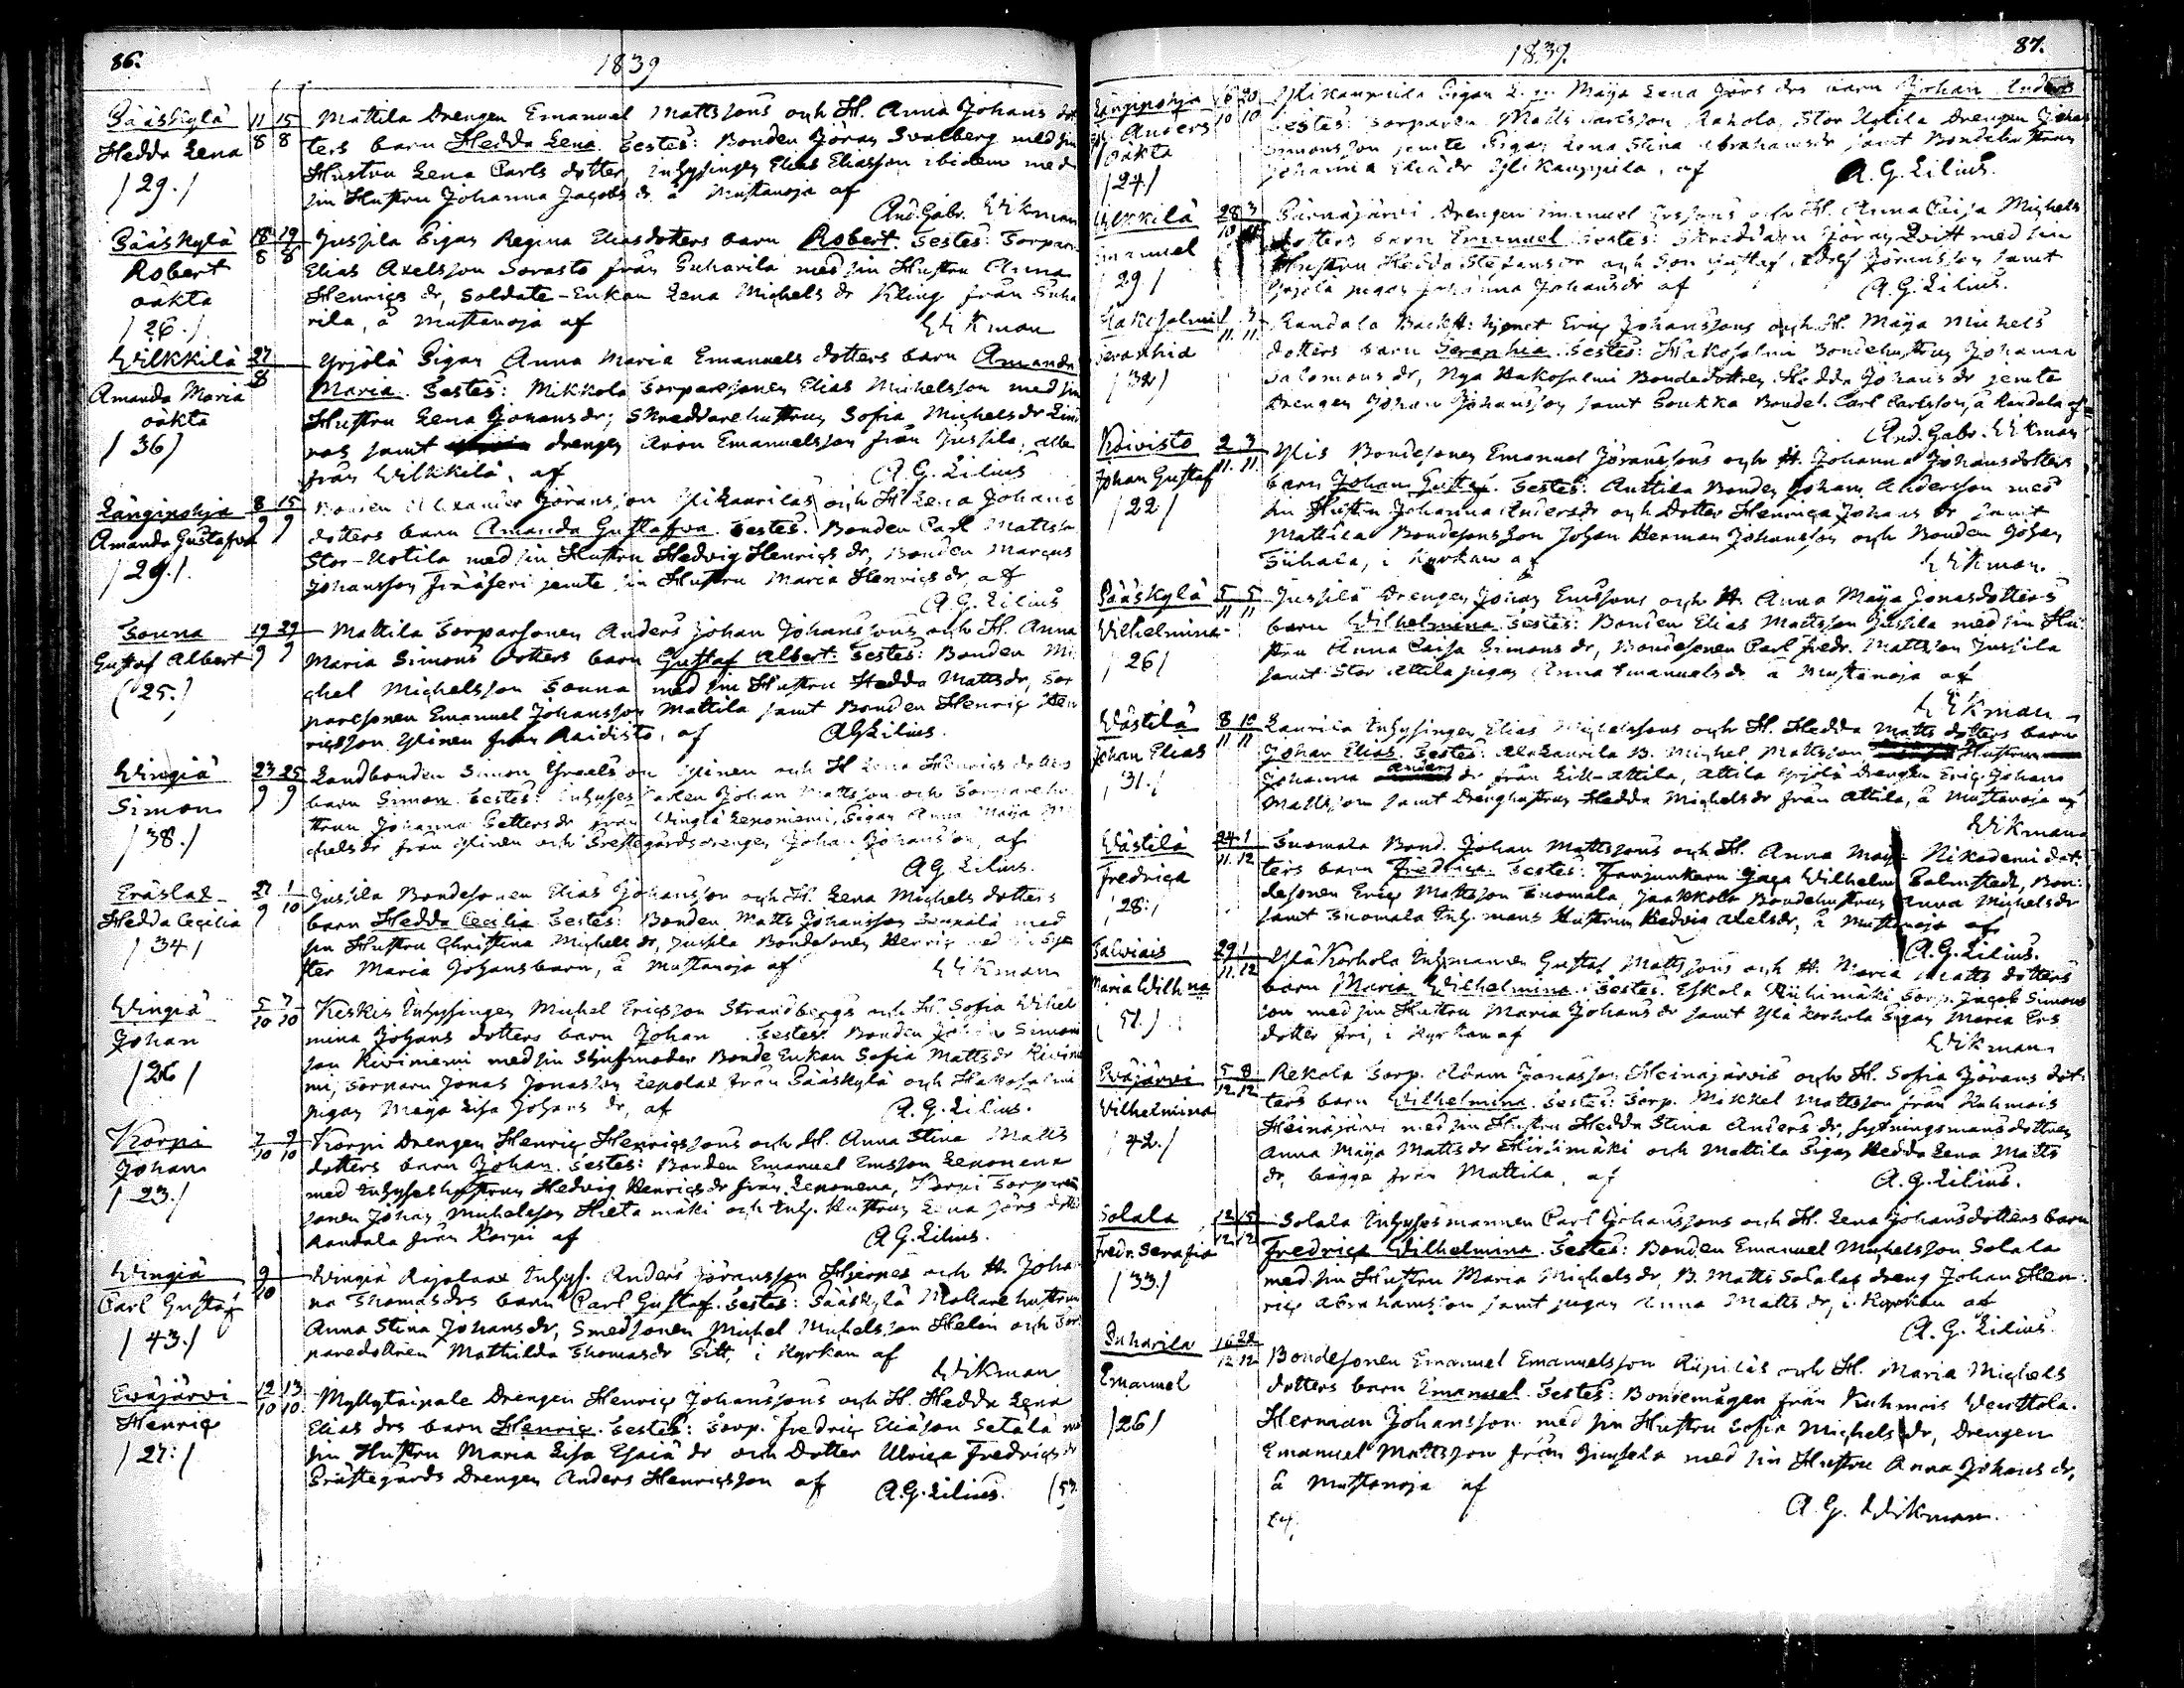 86.
1839
Pääskylä 11/8 15/8 Mattila Drengen Emanuel Mattssons och H. Anna Johans dot
Hedda Lena ters barn Hedda Lena. Testes: Bonden Jöran Svalberg med sin
Hustru Lena Carls dotter, Inhysingen Elias Eliasson ibidem med
/29./ sin Hustru Johanna Jacobs dr å Mustanoja af
And. Gabr. Wikman
Pääskylä 18/8 19/8 Jussila Pigan Regina Eliasdotters barn Robert. Testes: Torpar
Robert Elias Axelsson Sorasto från Puharila med sin Hustru Anna
oäkta Henrics dr, Soldate-Enkan Lena Michels dr Kling från Puha
/26./ rila, å Mustanoja af Wikman
Wilkkilä 27/8 Yrjölä Pigan Anna Maria Emanuels dotters barn Amanda
Amanda Maria Maria. Testes: Mikkola Torparesonen Elias Michelsson med sin
oäkta Hustru Lena Johans dr, Skreddarehustrun Sofia Michels dr
/36/ samt drengen Emanuelsson från Jussila, alla
från Wilkkilä, af A.G. Lilius
Längipohja 8/9 15/9 Bonden Alexander Göransson Ylikaurilas och H Lena Johans
Amanda Gustafva dotters barn Amanda Gustafva. Testes. Bonden Carl Mattsson
Stor-Uotila med sin Hustru Hedvig Henrics dr, Bonden Marcus
/29./ Johansson jemte sin Hustru Maria Henrics dr, af
A.G. Lilius
Touna 19/9 29/9 Mattila Torparsonen Anders Johan Johanssons och H. Anna
Gustaf Albert Maria Simons dotters barn Gustaf Albert. Testes: Bonden Mi
(25.) chel Michelsson Touna med sin Hustru Hedda Matts dr, Tor
paresonen Emanuel Johansson Mattila samt Bonden Henric Hen
ricsson Ylinen från Raidisto, af AG Lilius.
Wingiä 23/9 25/9 Landbonden Simon Ylinen och H Lena Henrics
Simon barn Simon. Testes: Johan Mattsson och Torpareh
/38./ strun Johanna Petters dr från Wingiä Leponiemi, Pigan Anna Maija Mi
chels dr från Ylinen och Prestegårdsdrengen Johan Johansson, af
AG. Lilius.
Eräslax 27/9 1/10 Jussila Bondesonen Elias Johansson och H. Lena Michels dotters
Hedda Cecilia barn Hedda Cecilia Testes: Bonden Matts Johansson med
/34/ sin Hustru Christina Michels dr, Jussila Bondesonen Henric med sin Sys
ter Maria Johansbarn, å Mustanoja af Wikman
Wingiä 5/10 7/10 Keskis Inhysingen Michel Ericsson Strandbergs och H. Sofia Wilhel
Johan mina Johans dotters barn Johan. Testes: Bonden Johan Simons
/26/ son Kiviniemi med sin Styfmoder Bonde Enkan Sofia Matts dr Kivinie
mi, Torparn Jonas Jonasson Lepolax från Pääskylä och Hakosalmi
pigan Maija Lisa Johans dr, af A.G. Lilius.
Korpi 7/10 9/10 Korpi Drengen Henric Henricssons och H. Anna Stina Matts
Johan dotters barn Johan. Testes: Bonden Emanuel Leponena
/23./ med Inhyseshustrun Hedvig Henrics dr från Leponena, Korpi Torpare
sonen Johan Michelsson Hieta mäki och Inh. Hustrun Lena Jörs dotter
Randala från Korpi af A.G. Lilius.
Wingiä 9/10 Wingiä Rajalaax Inhys. Anders Jöransson Hjerpes och H. Johan
Carl Gustaf na Thomas drs barn Carl Gustaf. Testes: Pääskylä Mollarehustrun
/43./ Anna Stina Johans dr, Smedsonen Michel Michelsson Helin och Tor
paredottren Mathilda Thomasdr Pitt, i Kyrkan af
Wikman
Eväjärvi 12/10 13/10 Myllytaipale Drengen Henric Johanssons och H. Hedda Lena
Henric Elias drs barn Henric. Testes: Torp. Fredric Eliasson Setälä med
/27:/ sin Hustru Maria Lisa Esaiä dr och Dotter Ulrica Fredrics dr
Prästegårds Drengen Anders Henricsson af A.G. Lilius.
1839. 87.
Längipohja 16/10 20/10 Ylikauppila Pigan Maija Lena Görs drs barn Johan Anders
Anders Testes: Torparen Matts Carlsson Rahola, Stor Uotila Drengen Johan
oäkta Simonsson jemte Pigan Lena Stina Abrahams dr samt Bondehustrun
/24/ Johanna Eliä dr Ylikauppila, af A.G. Lilius.
Wilkkilä 28/10 3/11 Särnäjärvi Drengen Emanuel Erssons och H. Anna Caisa Michels
Emanuel dotters barn Emanuel Testes: Skreddarn Jöran Qvitt med sin
/29/ Hustru Hedda Stefans dr och Son Gustaf Adolf Jöransson samt
Yrjölä pigan Johanna Johans dr af A.G. Lilius.
Hakosalmi 3/11 Randala Backst. hjonet Eric Johanssons och H. Maija Michels
Seraphia dotters barn Seraphia. Testes: Hakosalmi Bondehustrun Johanna
/32/ Salomons dr, Nya Hakosalmi Bondedottren Hedda Johans dr jemte
Drengen Johan Johansson samt Poukka Bondes. Carl Carlsson, å Randala af
And. Gabr. Wikman
Koivisto 2/11 3/11 Ylis Bondesonen Emanuel Jöranssons och H. Johanna Johansdotters
Johan Gustaf barn Johan Gustaf. Testes: Anttila Bonden Johan Andersson med
/22/ sin Hustru Johanna Anders dr och Dotter Henrica Johans dr samt
Mattila Bondesons Son Johan Herman Johansson och Bonden Johan
i Kyrkan af Wikman.
Pääskylä 5/11 5/11 Jussila Drengen Johan Erssons och H. Anna Maija Jonasdotters
Wilhelmina barn Wilhelmina. Testes: Bonden Elias Mattsson Jussila med sin Hu
/26/ stru Anna Caisa Simons dr, Bondesonen Carl Fredr. Mattsson Jussila
samt Stor Attila pigan Anna Emanuels dr å Mustanoja af
Wikman
Västilä 8/11 10/11 Laurila Inhysingen Elias Michelssons och H. Hedda Matts dotters barn
Johan Elias Johan Elias. Testes: Alakaurila B. Michel Mattsson Hustrun
/31./ Johanna Anders dr från Lill-Attila, Attila Yrjölä Drengen Eric Johans
Mattsson samt Drenghustrun Hedda Michels dr från Attila, å Mustanoja af
Wikman
Västilä 24/11 1/12 Suomala Bond. Johan Mattssons och H. Anna Maja Nikodemi dot
Fredrica ters barn Fredrica. Testes: Fanjunkarn Gaga Wilhelm Palmstedt, Bon:
/28:/ desonen Eric Mattsson Suomala, Jaakkola Bondehustrun Anna Michels dr
samt Suomala Inh. mans Hustrun Hedvig Axels dr, å Mustanoja af
A.G. Lilius.
Talviais 29/11 1/12 Ylä Korhola Inhmannen Gustaf Mattssons och H. Maria Matts dotters
Maria Wilhna barn Maria Wilhelmina. Testes. Eskola Riihimäki Torp. Jacob Simons
(51.) son med sin Hustru Maria Johans dr samt Ylä Korhola Pigan Maria Ers
dotter i Kyrkan af Wikman
Eväjärvi 5/12 8/12 Rekola Torp. Adam Jonasson Heinäjärvis och H. Sofia Jörans dot:
Wilhelmina ters barn Wilhelmina. Testes: Torp. Mikkel Mattsson från Kuhmois
/42./ Heinäjärvi med sin Hustru Hedda Stina Anders dr, Sytningsmans dottren
Anna Maija Matts dr Hirsimäki och Mattila Pigan Hedda Lena Matts
dr, bägge från Mattila, af A.G. Lilius.
Solala 12/12 15/12 Solala Inhysesmannen Carl Johanssons och H. Lena Johansdotters barn
Fredr. Serafia Fredrica Wilhelmina. Testes: Bonden Emanuel Michelsson Solala
/33./ med sin Hustru Maria Michels dr, B. Matts Solalas dreng Johan Hen:
ric Abrahamsson samt pigan Anna Matts dr, i Kyrkan af
A.G. Lilius.
Puharila 16/12 22/12 Bondesonen Emanuel Emanuelsson och H. Maria Michels
Emanuel dotters barn Emanuel. Testes: Bondemågen från Kuhmois
/26/ Herman Johansson med sin Hustru Sofia Michels dr, Drengen
Emanuel Mattsson från med sin Hustru Anna Johans dr,
å Mustanoja af
A.G. Wikman.